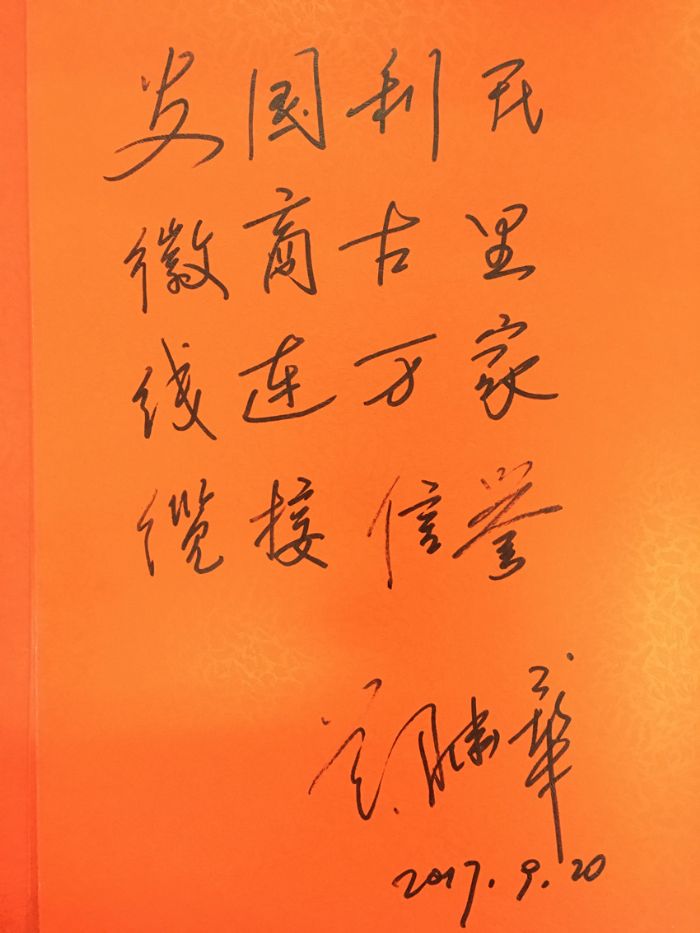 安国利民
徽商古里
线连万家
缆接信誉
胜华
2017.9.20